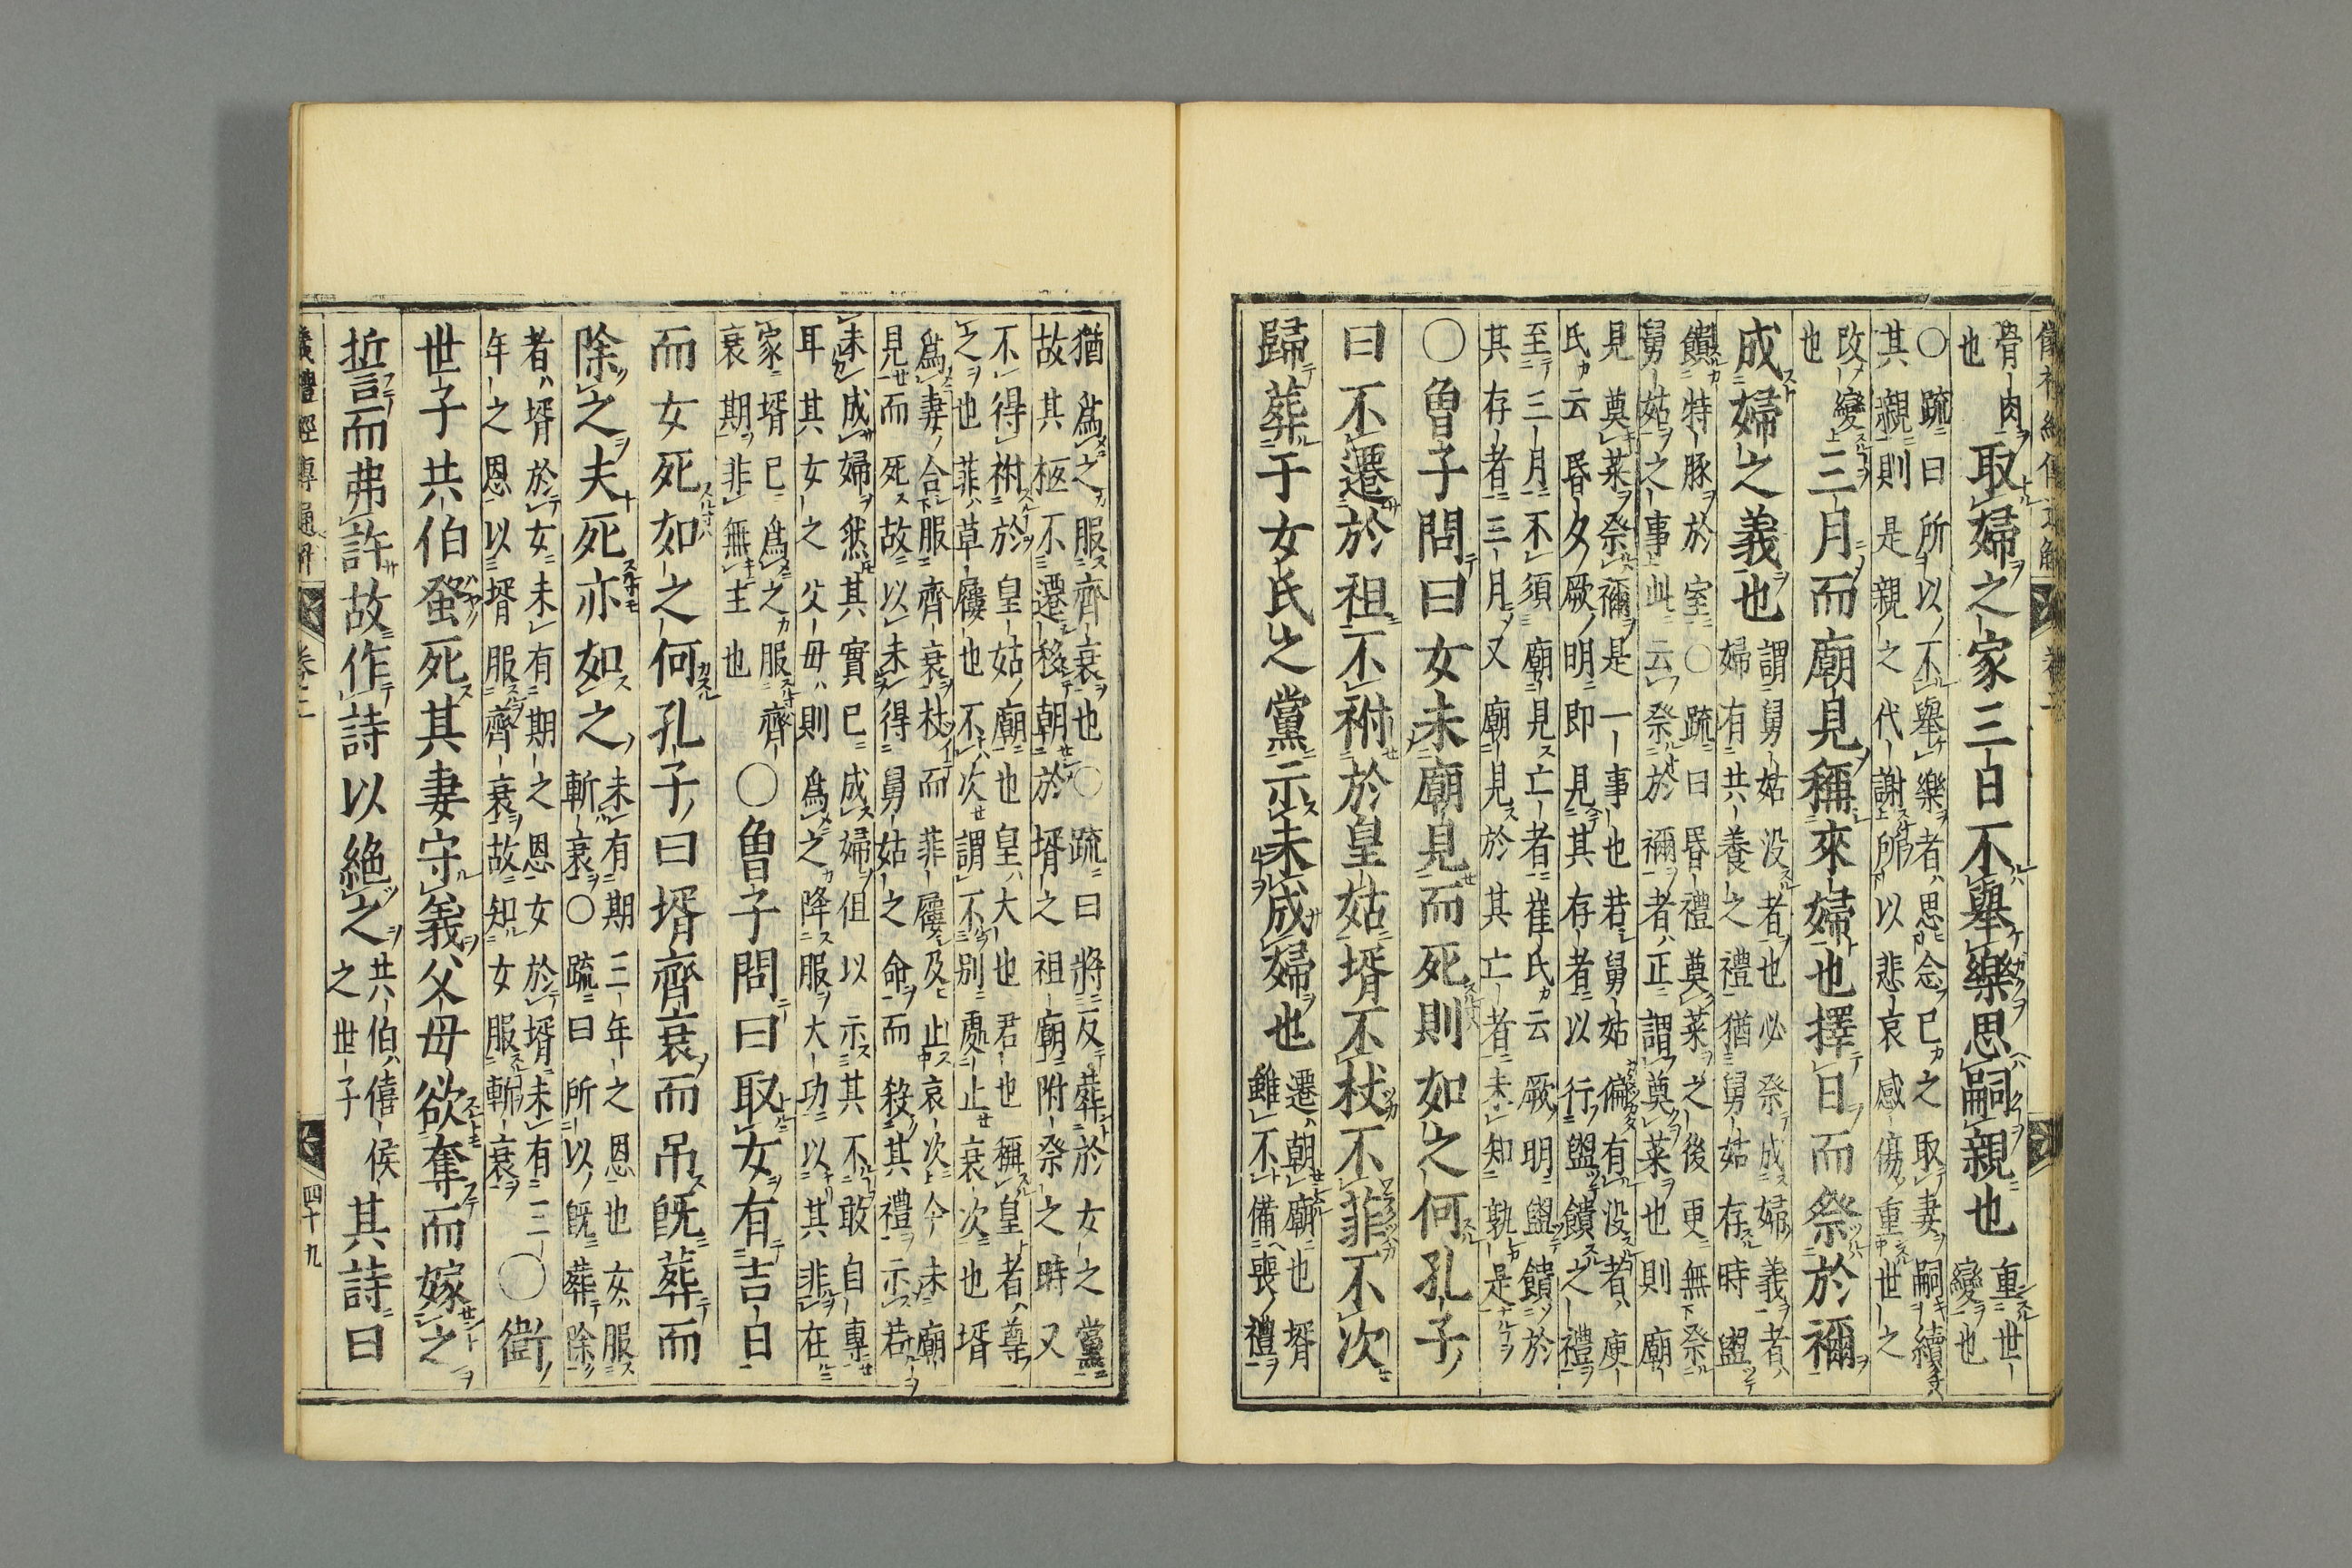 骨肉
也
取婦之家三日不舉樂思嗣親也
重世
變也
○疏曰所以不舉樂者思念已之取妻嗣續
其親則是親之代謝所以悲哀感傷重世之
改變
也
三月而廟見稱來婦也擇日而祭於禰
成婦之義也
謂舅姑没者也必祭成婦義者
婦有共養之禮猶舅姑存時盥
饋特豚於室○疏曰昏禮奠菜之後更無祭
舅姑之事此云祭於禰者正謂奠菜也則廟
見奠菜祭禰是一事也若舅姑偏有没者庾
氏云昏夕厥明即見其存者以行盥饋之禮
至三月不須廟見亡者崔氏云厥明盥饋於
其存者三月又廟見於其亡者未知孰是
○曾子問曰女未廟見而死則如之何孔子
曰不遷於祖不祔於皇姑壻不杖不菲不次
歸葬于女氏之黨示未成婦也
遷朝廟也壻
雖不備喪禮
猶爲之服齊衰也○疏曰將反葬於女之黨
故其柩不遷移朝於壻之祖廟附祭之時又
不得祔於皇姑廟也皇大也君也稱皇者尊
之也菲草屨也不次謂不別處止哀次也壻
爲妻合服齊衰杖而菲屨及止哀次今未廟
見而死故以未得舅姑之命而殺其禮示若
未成婦然其實已成婦但以示其不敢自專
耳其女之父母則爲之降服大功以其非在
家壻已爲之服齊
衰期非無主也
○曾子問曰取女有吉日
而女死如之何孔子曰壻齊衰而吊既葬而
除之夫死亦如之
未有期三年之恩也女服
斬衰○疏曰所以既葬除
者壻於女未有期之恩女於壻未有三
年之恩以壻服齊衰故知女服斬衰
○衛
世子共伯蚤死其妻守義父母欲奪而嫁之
誓而弗許故作詩以絶之
共伯僖侯
之世子
其詩曰
儀禮經傳通解
卷二
四十九